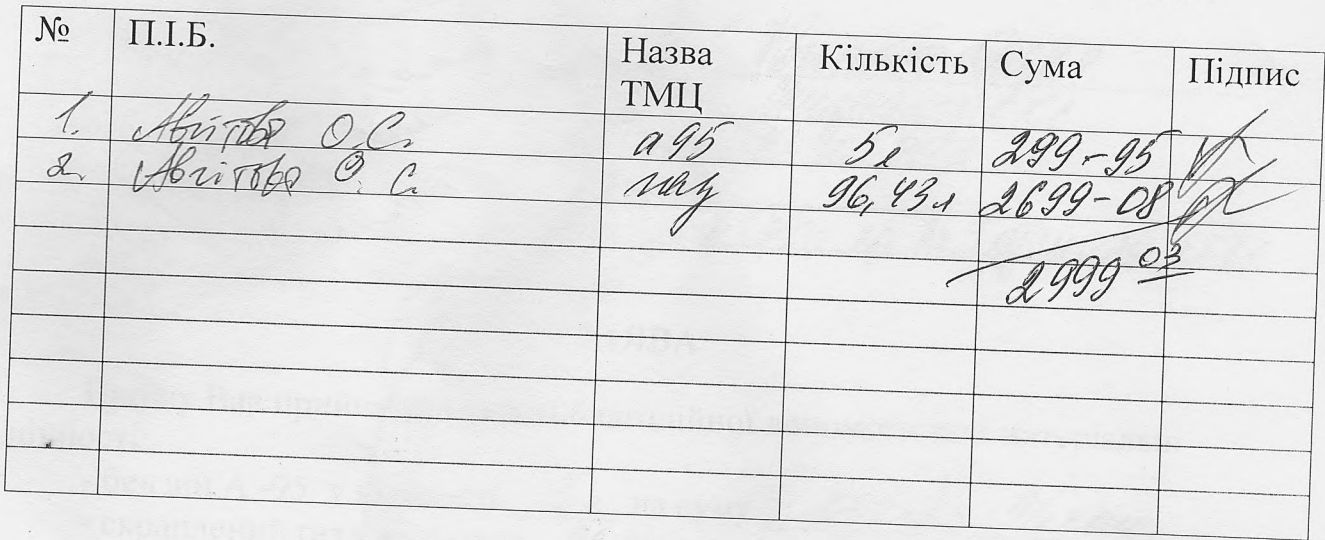 № П.І.Б. Назва ТМЦ Кількість Сума Підпис
1. О.С. а95 5л 299-95
2. О.С. 96,43л 2699-08
2999 03